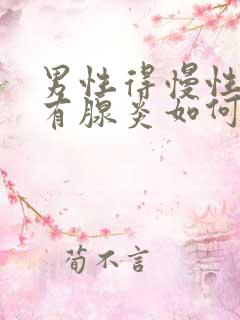 男性得慢性
有腺炎如何
荀不言